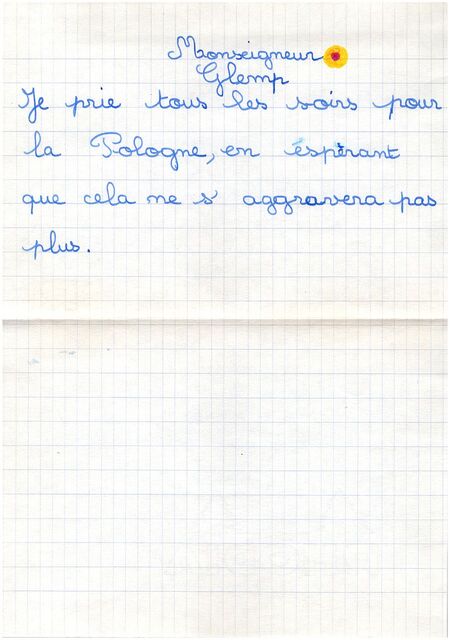 Monseigneur
Glemp
Je prie tous les soirs pour
la Pologne, en éspèrant
que cela ne s' aggravera pas
plus.